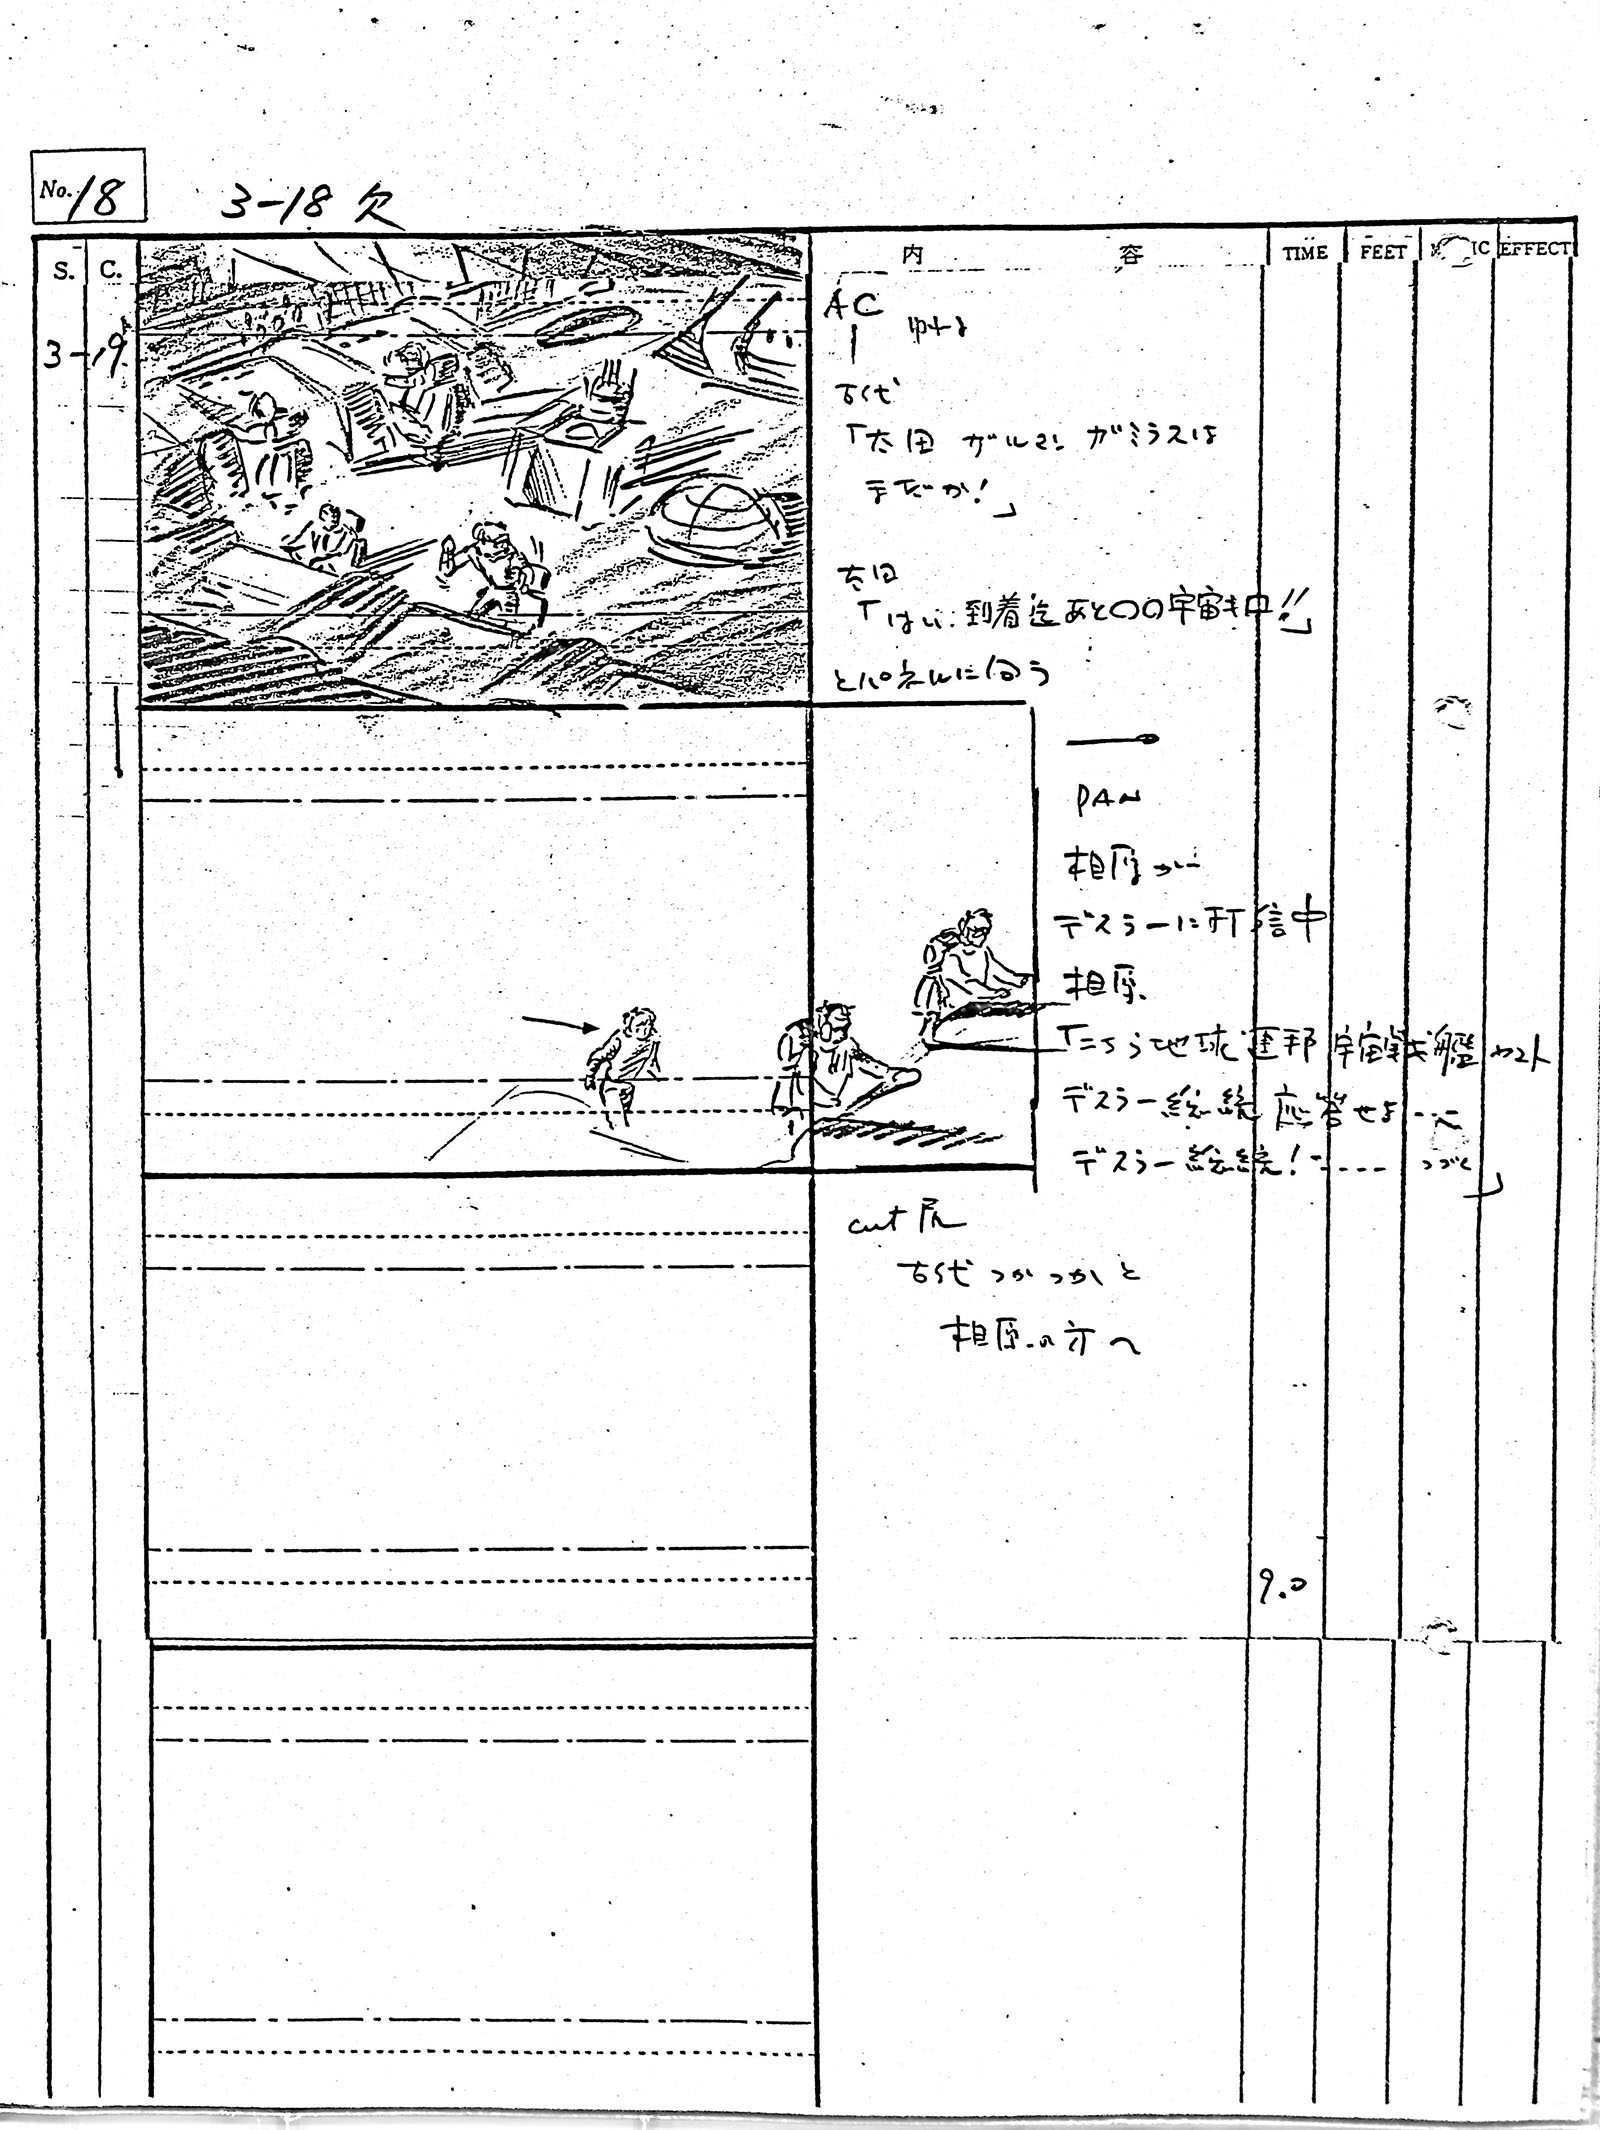 No. 18
3-18 欠
S. C. 内容 TIME FEET IC EFFECT
3-19
AC
古代
「太田 ガルマンガミラスは
まだか!」
太田
「はい…到着迄あと〇〇宇宙キロ!!」
とパネルに向う
PAN
相原が
デスラーに打信中
相原
「こちら地球連邦宇宙戦艦ヤマト
デスラー総統 応答せよ……
デスラー総統!…… つづく」
cut尻
古代つかつかと
相原の方へ
9.0